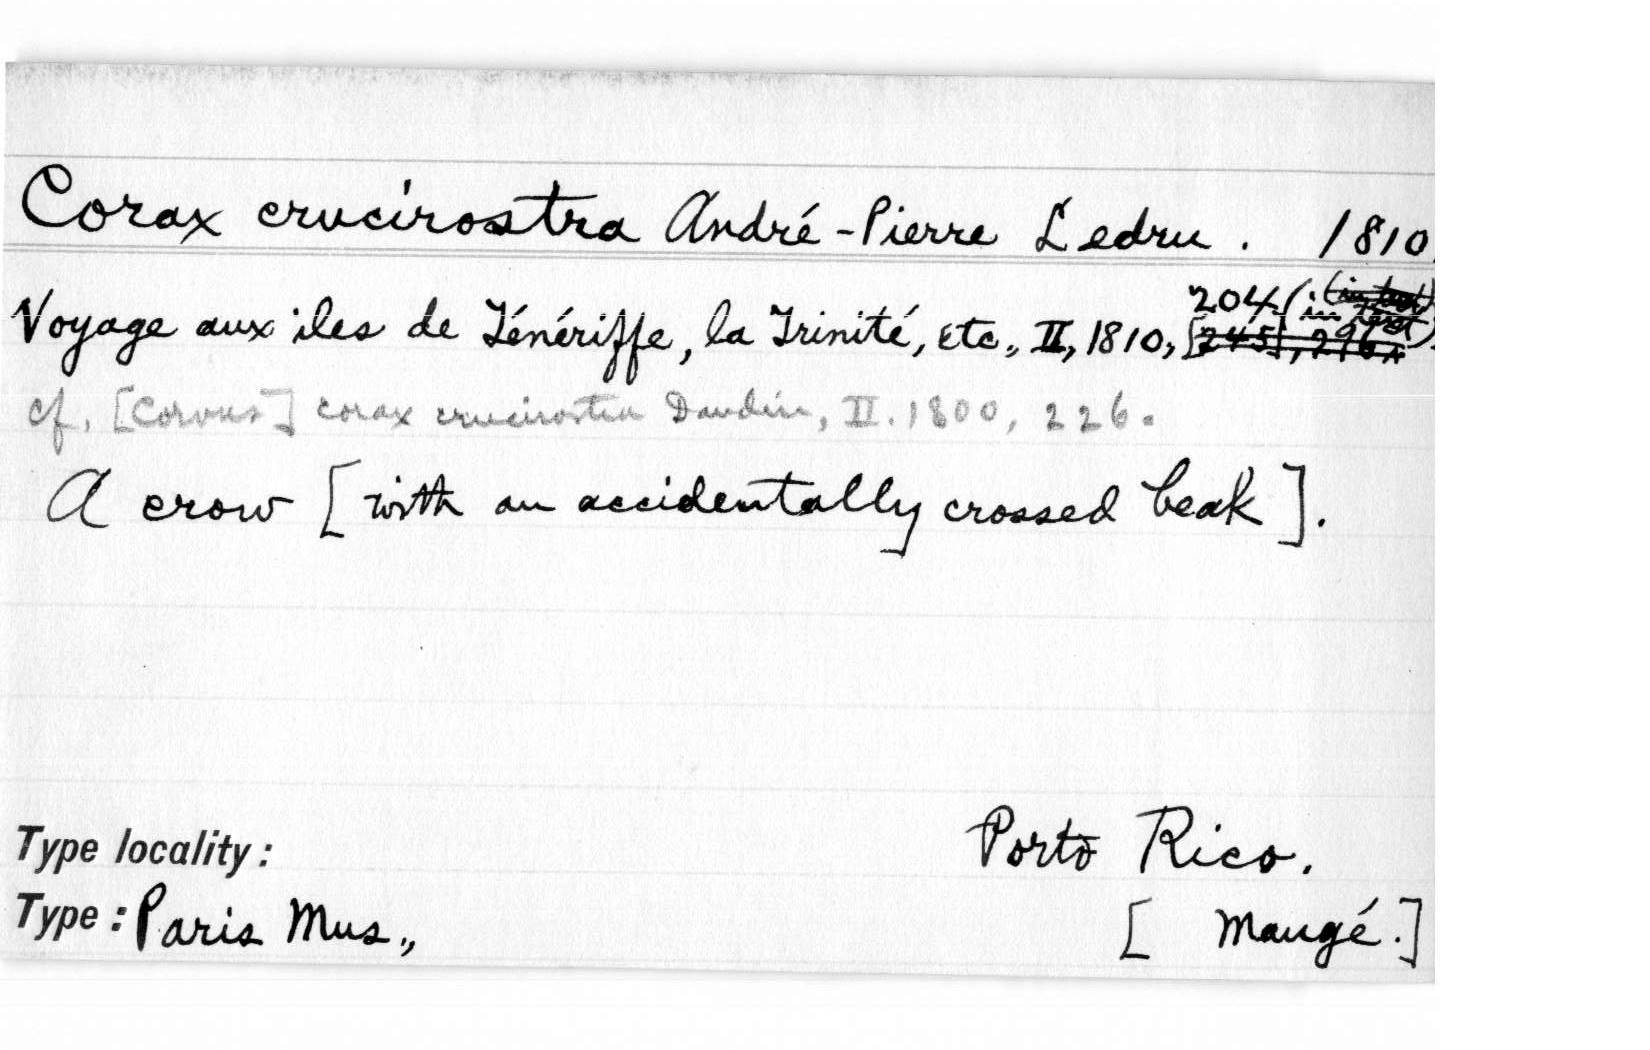 Corax crucirostra André-Pierre Ledru. 1810.
Voyage aux îles de Ténériffe, la Trinité, etc., II, 1810, 204 (in text).
cf. [Corvus] corax crucirostra Daudin, II. 1800, 226.
A crow [with an accidentally crossed beak].
Type locality: Porto Rico.
Type: Paris Mus., [ Maugé.]